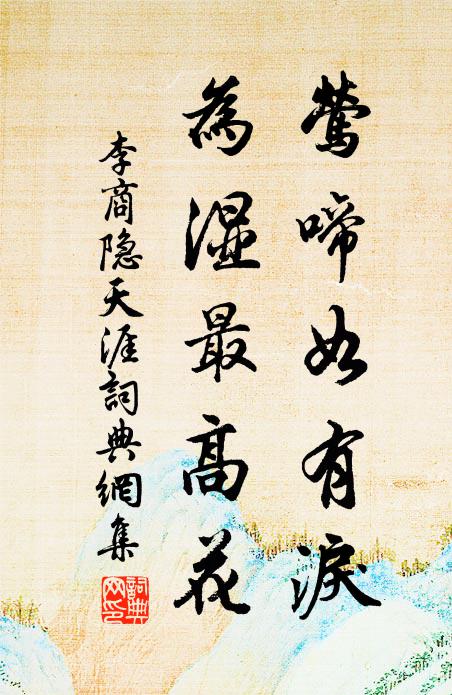 鶯啼如有淚
為濕最高花
李商隐天涯詞典網集
詞典网印